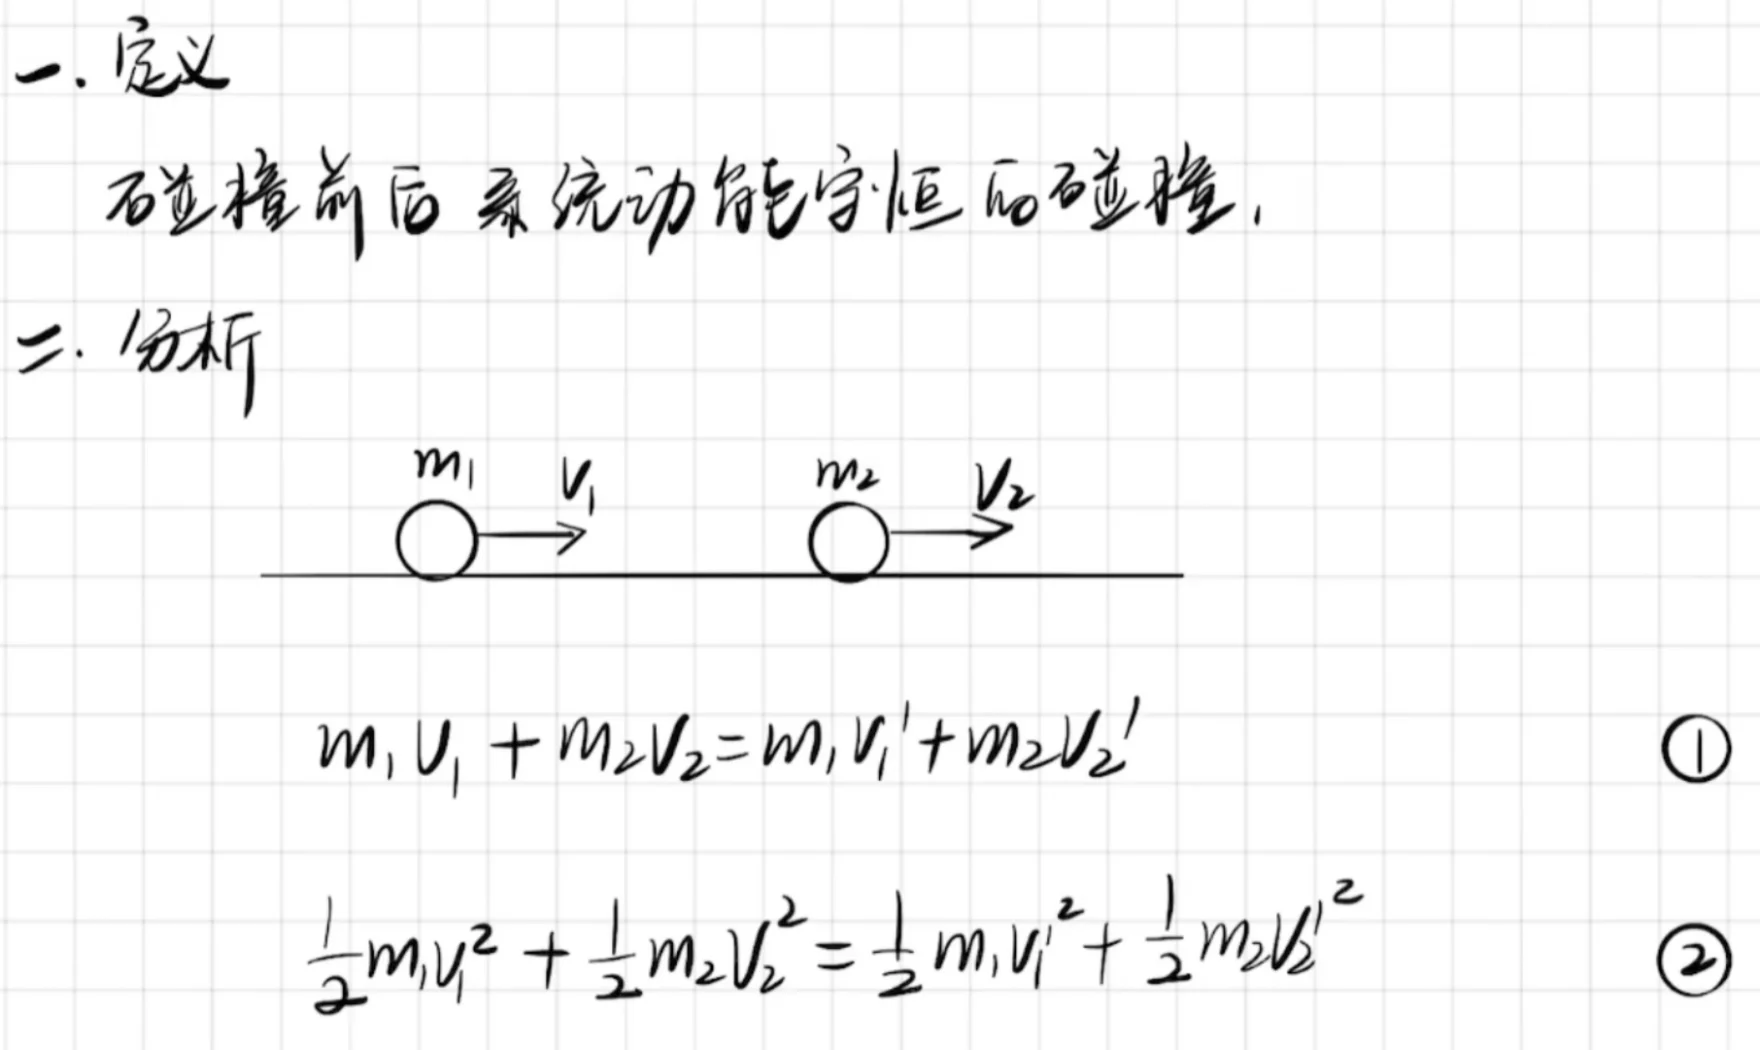 一. 定义
碰撞前后系统动能守恒的碰撞.
二. 分析
m₁ v₁ m₂ v₂
m₁v₁ + m₂v₂ = m₁v₁' + m₂v₂' ①
½m₁v₁² + ½m₂v₂² = ½m₁v₁'² + ½m₂v₂'² ②